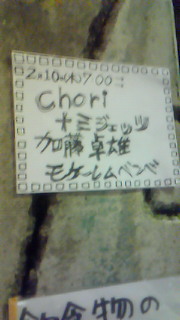 2月10日(木)7:00~
chori
ナミジェッツ
加藤卓雄
モケーレムベンベ
飲食物の